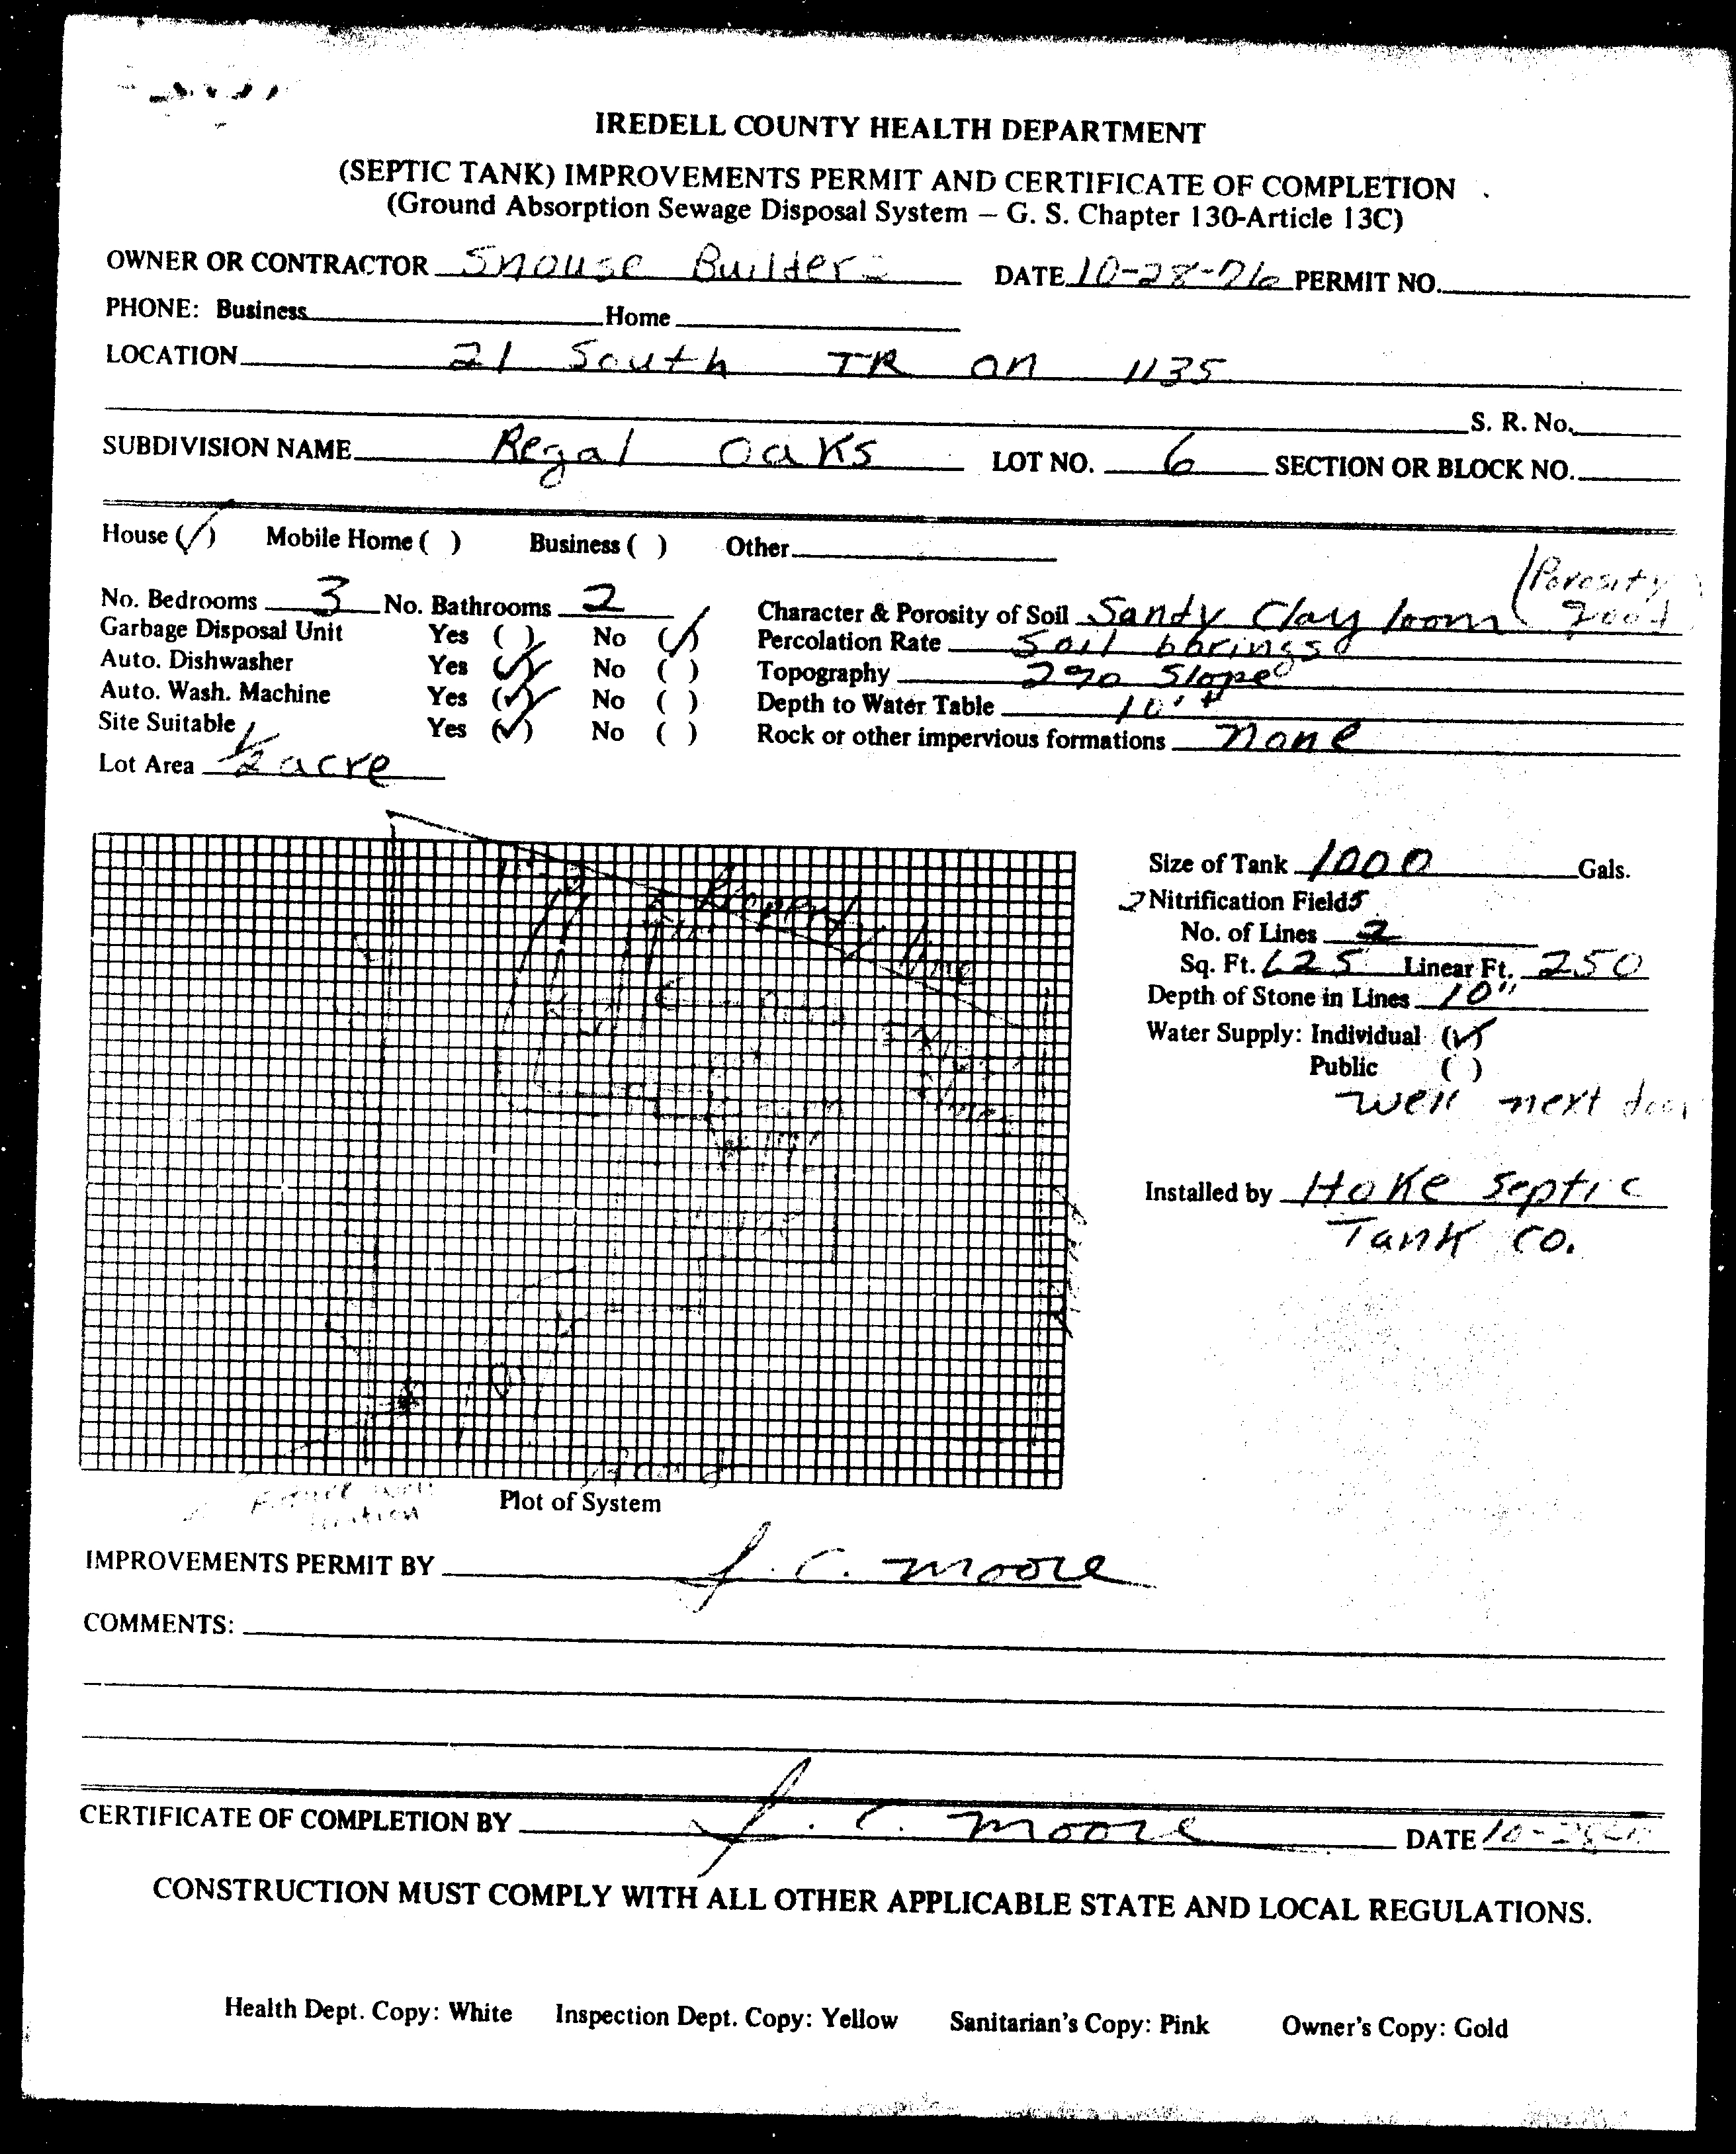 IREDELL COUNTY HEALTH DEPARTMENT
(SEPTIC TANK) IMPROVEMENTS PERMIT AND CERTIFICATE OF COMPLETION
(Ground Absorption Sewage Disposal System – G. S. Chapter 130-Article 13C)
OWNER OR CONTRACTOR Shouse Builders DATE 10-28-76 PERMIT NO.
PHONE: Business Home
LOCATION 21 South TR on 1135
S. R. No.
SUBDIVISION NAME Regal Oaks LOT NO. 6 SECTION OR BLOCK NO.
House (✓) Mobile Home ( ) Business ( ) Other
(Porosity
No. Bedrooms 3 No. Bathrooms 2 Character & Porosity of Soil Sandy Clay loom good
Garbage Disposal Unit Yes ( ) No (✓) Percolation Rate Soil borings
Auto. Dishwasher Yes (✓) No ( ) Topography 2% Slope
Auto. Wash. Machine Yes (✓) No ( ) Depth to Water Table 10'+
Site Suitable Yes (✓) No ( ) Rock or other impervious formations none
Lot Area 1/2 acre
Size of Tank 1000 Gals.
2 Nitrification Fields
No. of Lines 2
Sq. Ft. 625 Linear Ft. 250
Depth of Stone in Lines 10"
Water Supply: Individual (✓)
Public ( )
well next door
Installed by Hoke Septic
Tank Co.
Property line
lines
future well
location
Plot of System
IMPROVEMENTS PERMIT BY J. C. Moore
COMMENTS:
CERTIFICATE OF COMPLETION BY J. C. Moore DATE 10-28
CONSTRUCTION MUST COMPLY WITH ALL OTHER APPLICABLE STATE AND LOCAL REGULATIONS.
Health Dept. Copy: White Inspection Dept. Copy: Yellow Sanitarian's Copy: Pink Owner's Copy: Gold